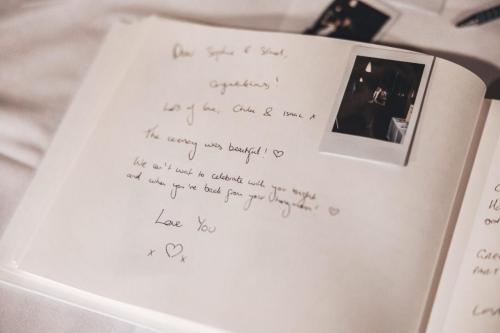 Dear Sophie &
Congratulations!
Lots of love, Chloe & Isaac x
The ceremony was beautiful! ♡
We can't wait to celebrate with you tonight
and when you're back from your honeymoon! ♡
Love You
x ♡ x